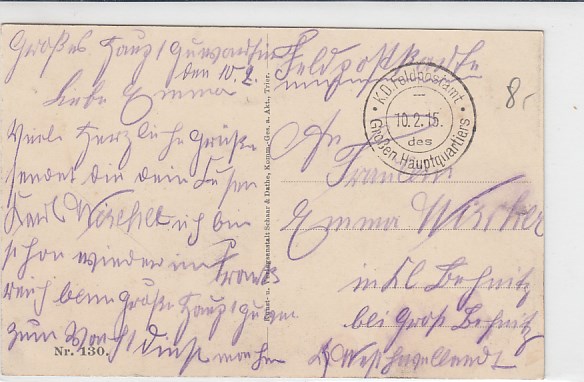 Großes Haupt Quwartier
den 10.2.
Liebe Emma
Viele Herzliche Grüße
sendet dir dein Cusen
Karl Wircher ich bin
schon wieder im Frank
reich beim Große Haupt Quar
zum Wacht dinst machen
Nr. 130.
Kunst- u. Verlagsanstalt Schaar & Dathe, Komm.-Ges. a. Akt., Trier.
Feldpostkarte
K.D. Feldpostamt
10.2.15.
des
Großen Hauptquartiers
8-
An
Fraulein
Emma
in Kl Behnitz
bei Groß Behnitz
Westhavellandt